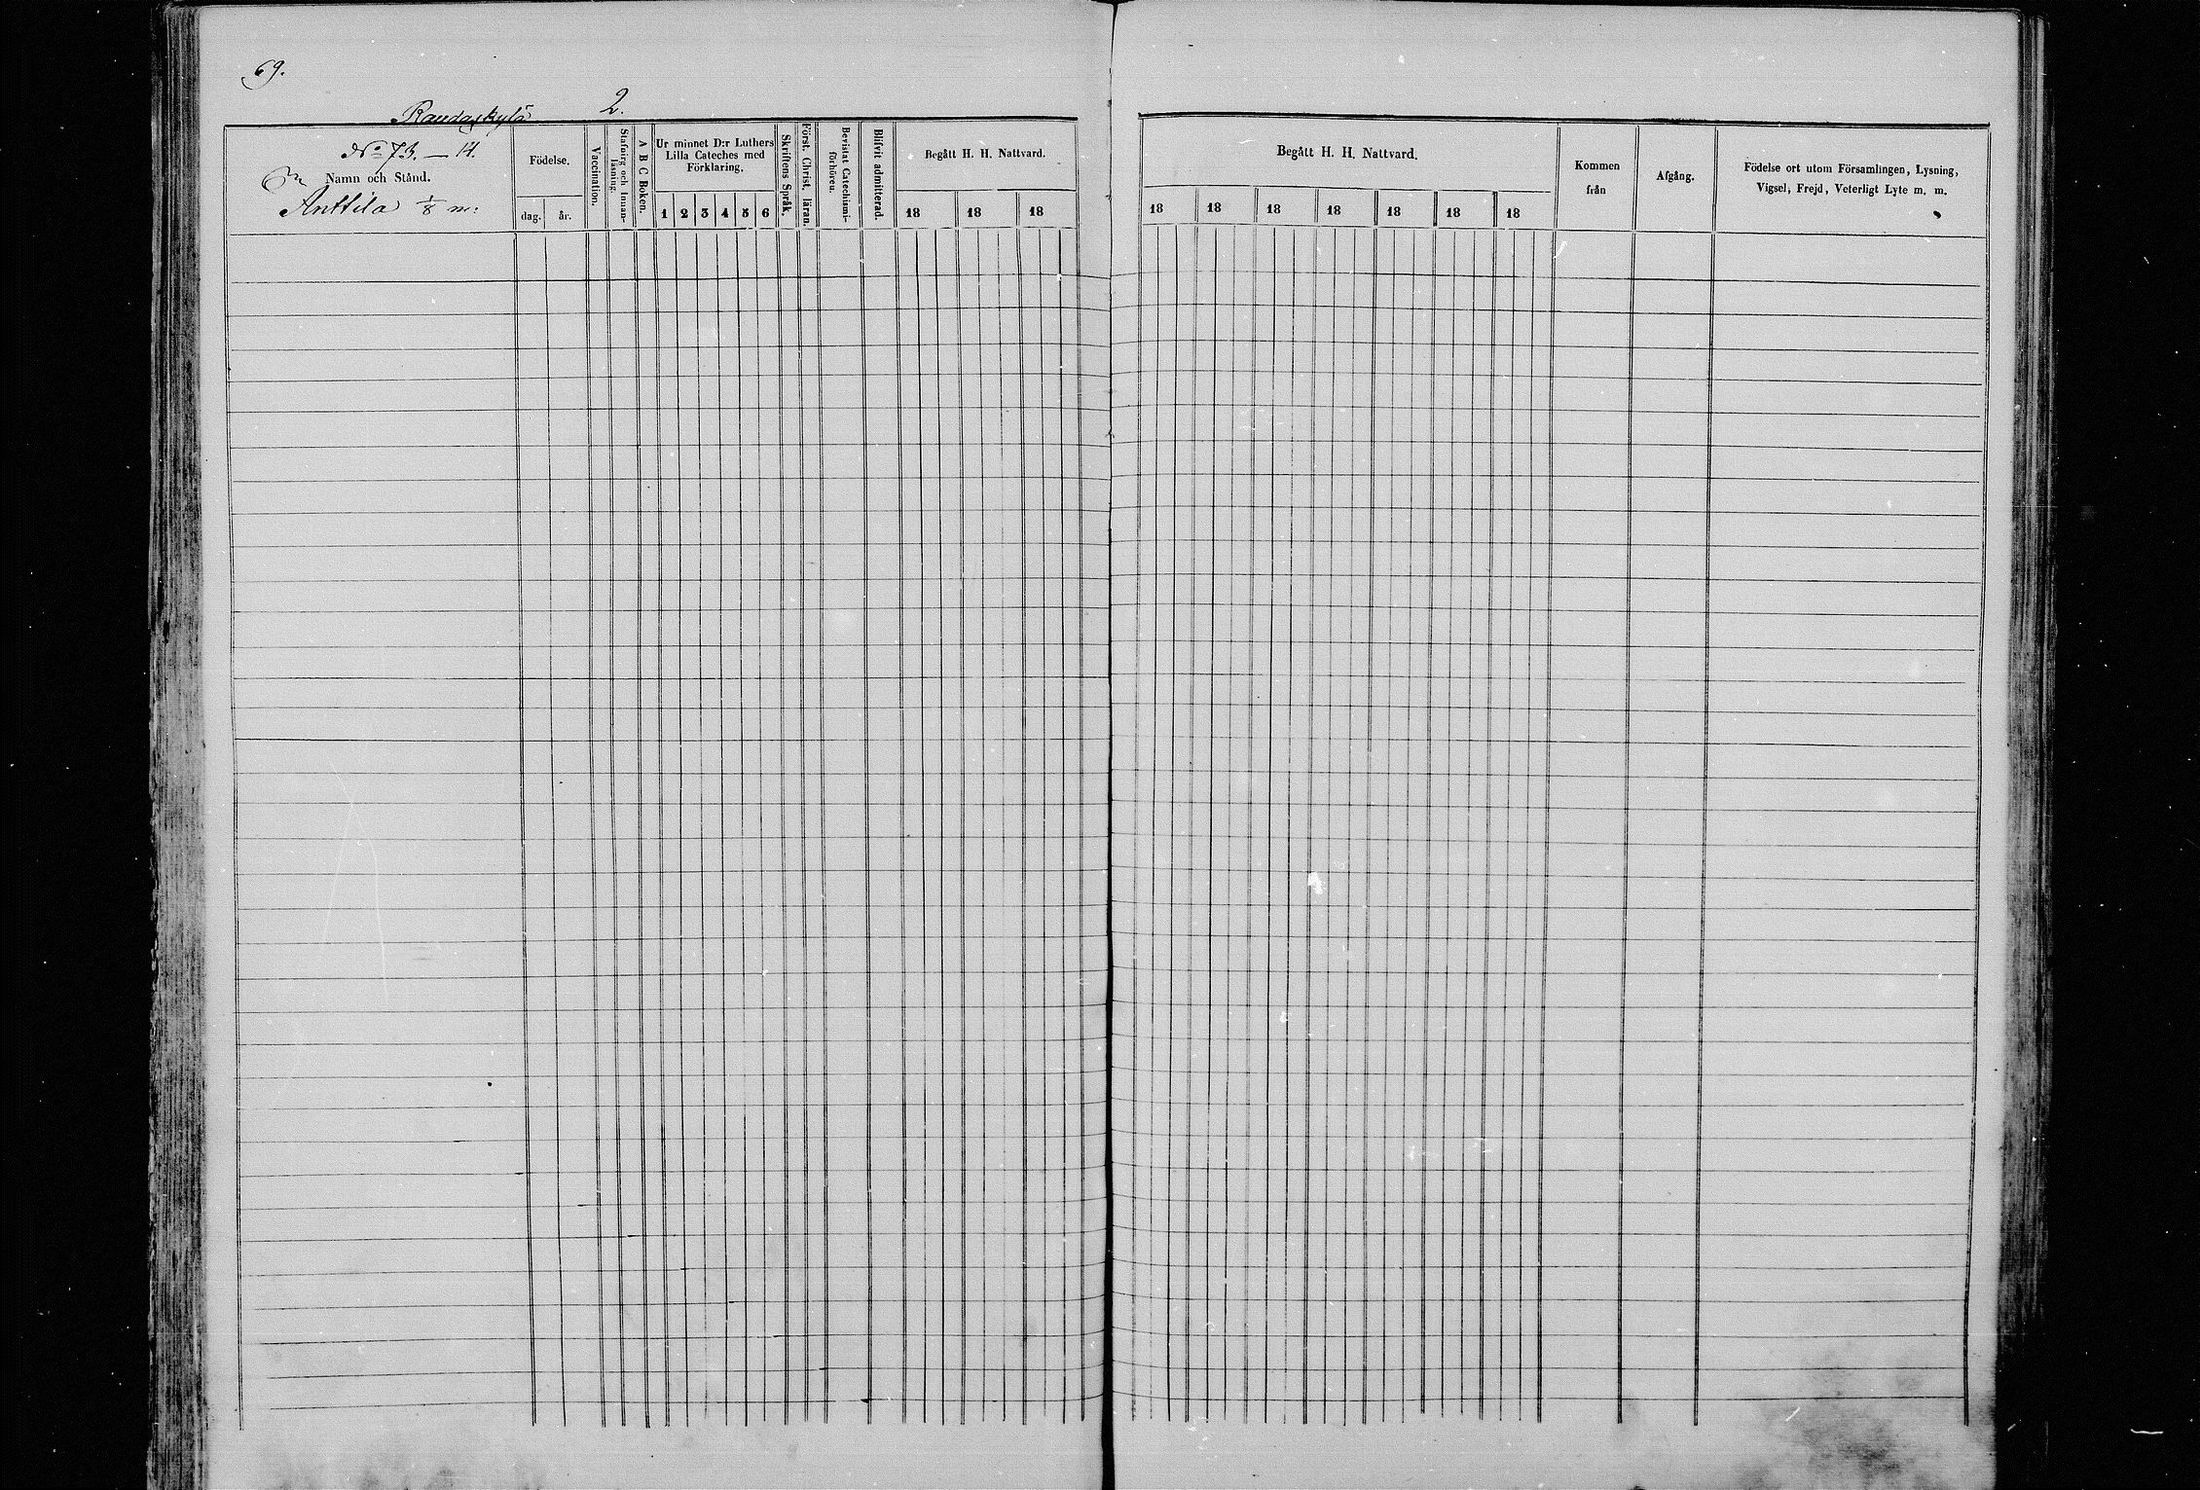 69.
Raudaskylä 2.
No 73. — 14.
Namn och Stånd.
Anttila 1/8 m:
Födelse.
dag. år.
Vaccination.
Stafning och Innan-
läsning.
A B C Boken.
Ur minnet D:r Luthers
Lilla Cateches med
Förklaring.
1 2 3 4 5 6
Skriftens Språk.
Först. Christ. läran.
Bevistat Catechismi-
förhören.
Blifvit admitterad.
Begått H. H. Nattvard.
18 18 18
Begått H. H. Nattvard.
18 18 18 18 18 18 18
Kommen
från
Afgång.
Födelse ort utom Församlingen, Lysning,
Vigsel, Frejd, Veterligt Lyte m. m.